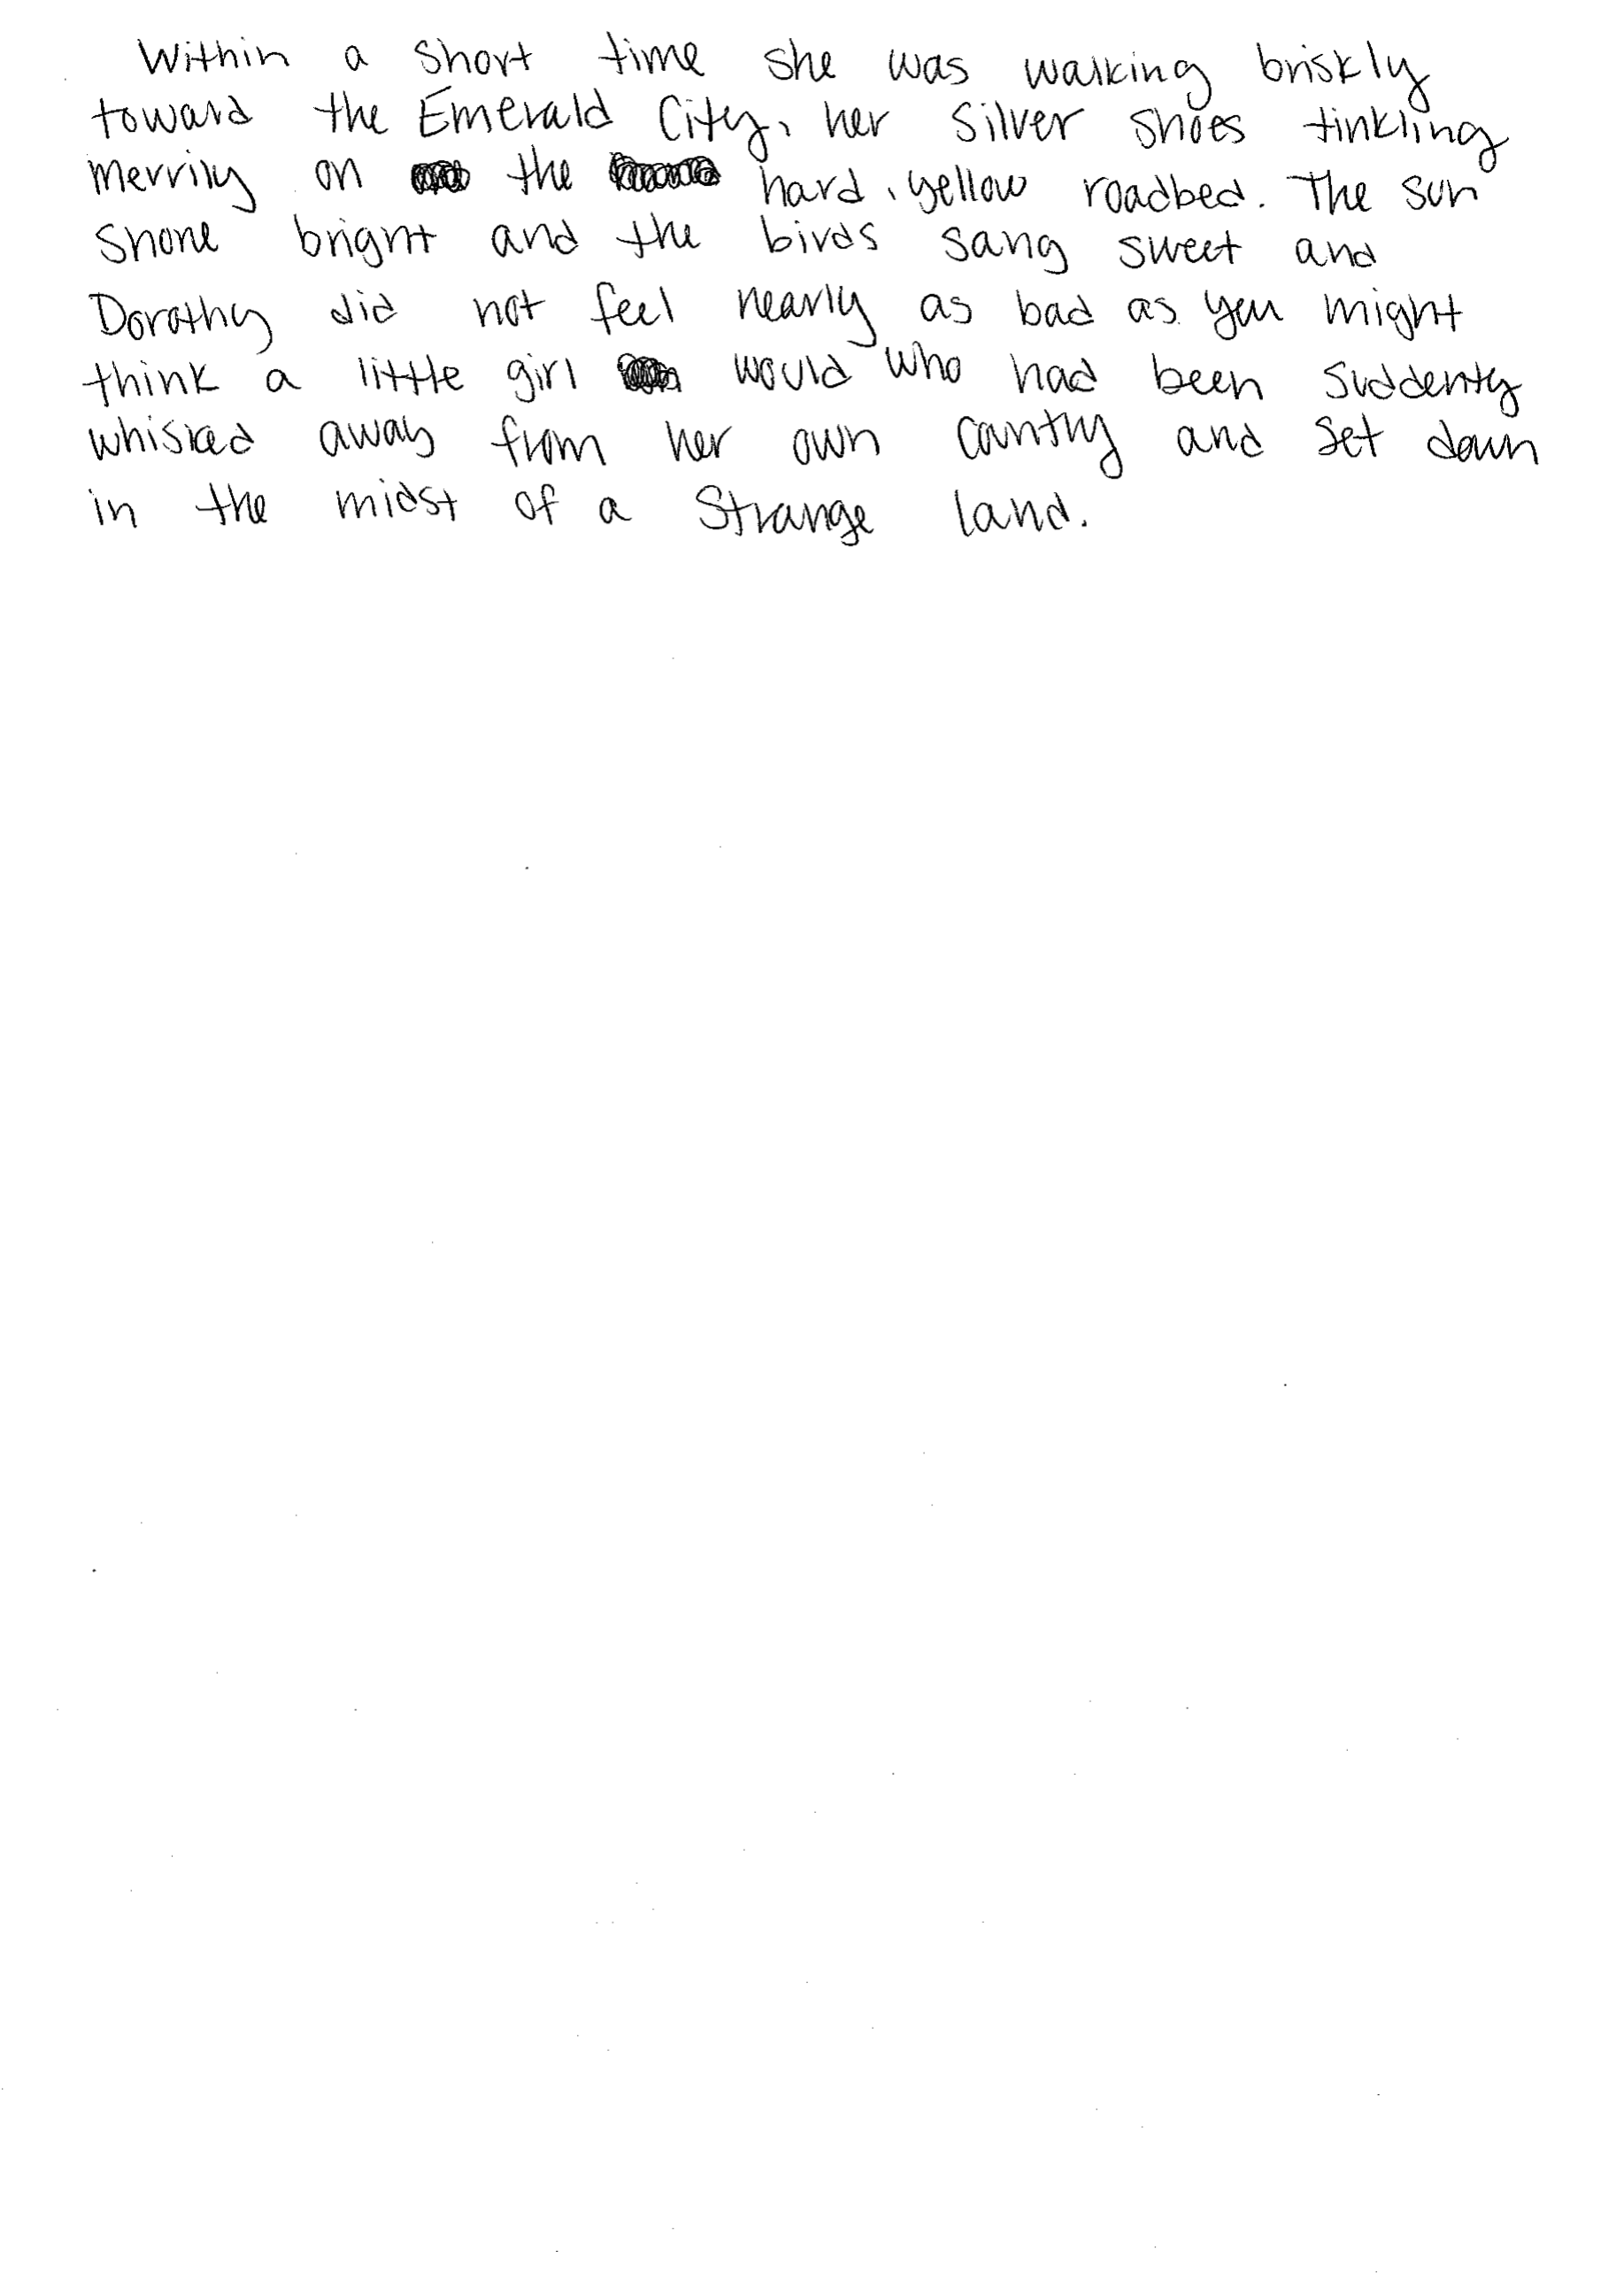 Within a short time she was walking briskly
toward the Emerald City, her Silver Shoes tinkling
merrily on the hard, yellow roadbed. The sun
shone bright and the birds sang sweet and
Dorothy did not feel nearly as bad as you might
think a little girl would who had been suddenly
whisked away from her own country and set down
in the midst of a strange land.